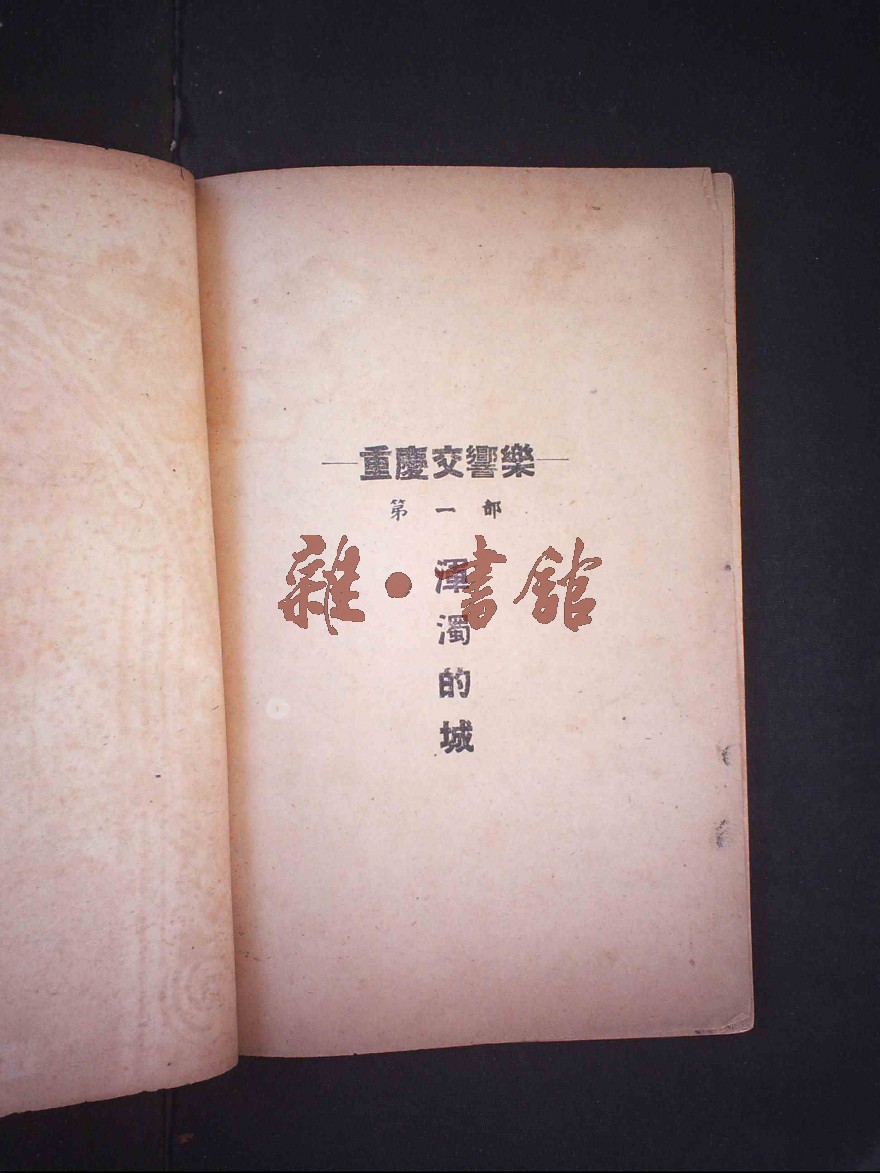 重慶交響樂
第一部
雜·書館
渾濁的城